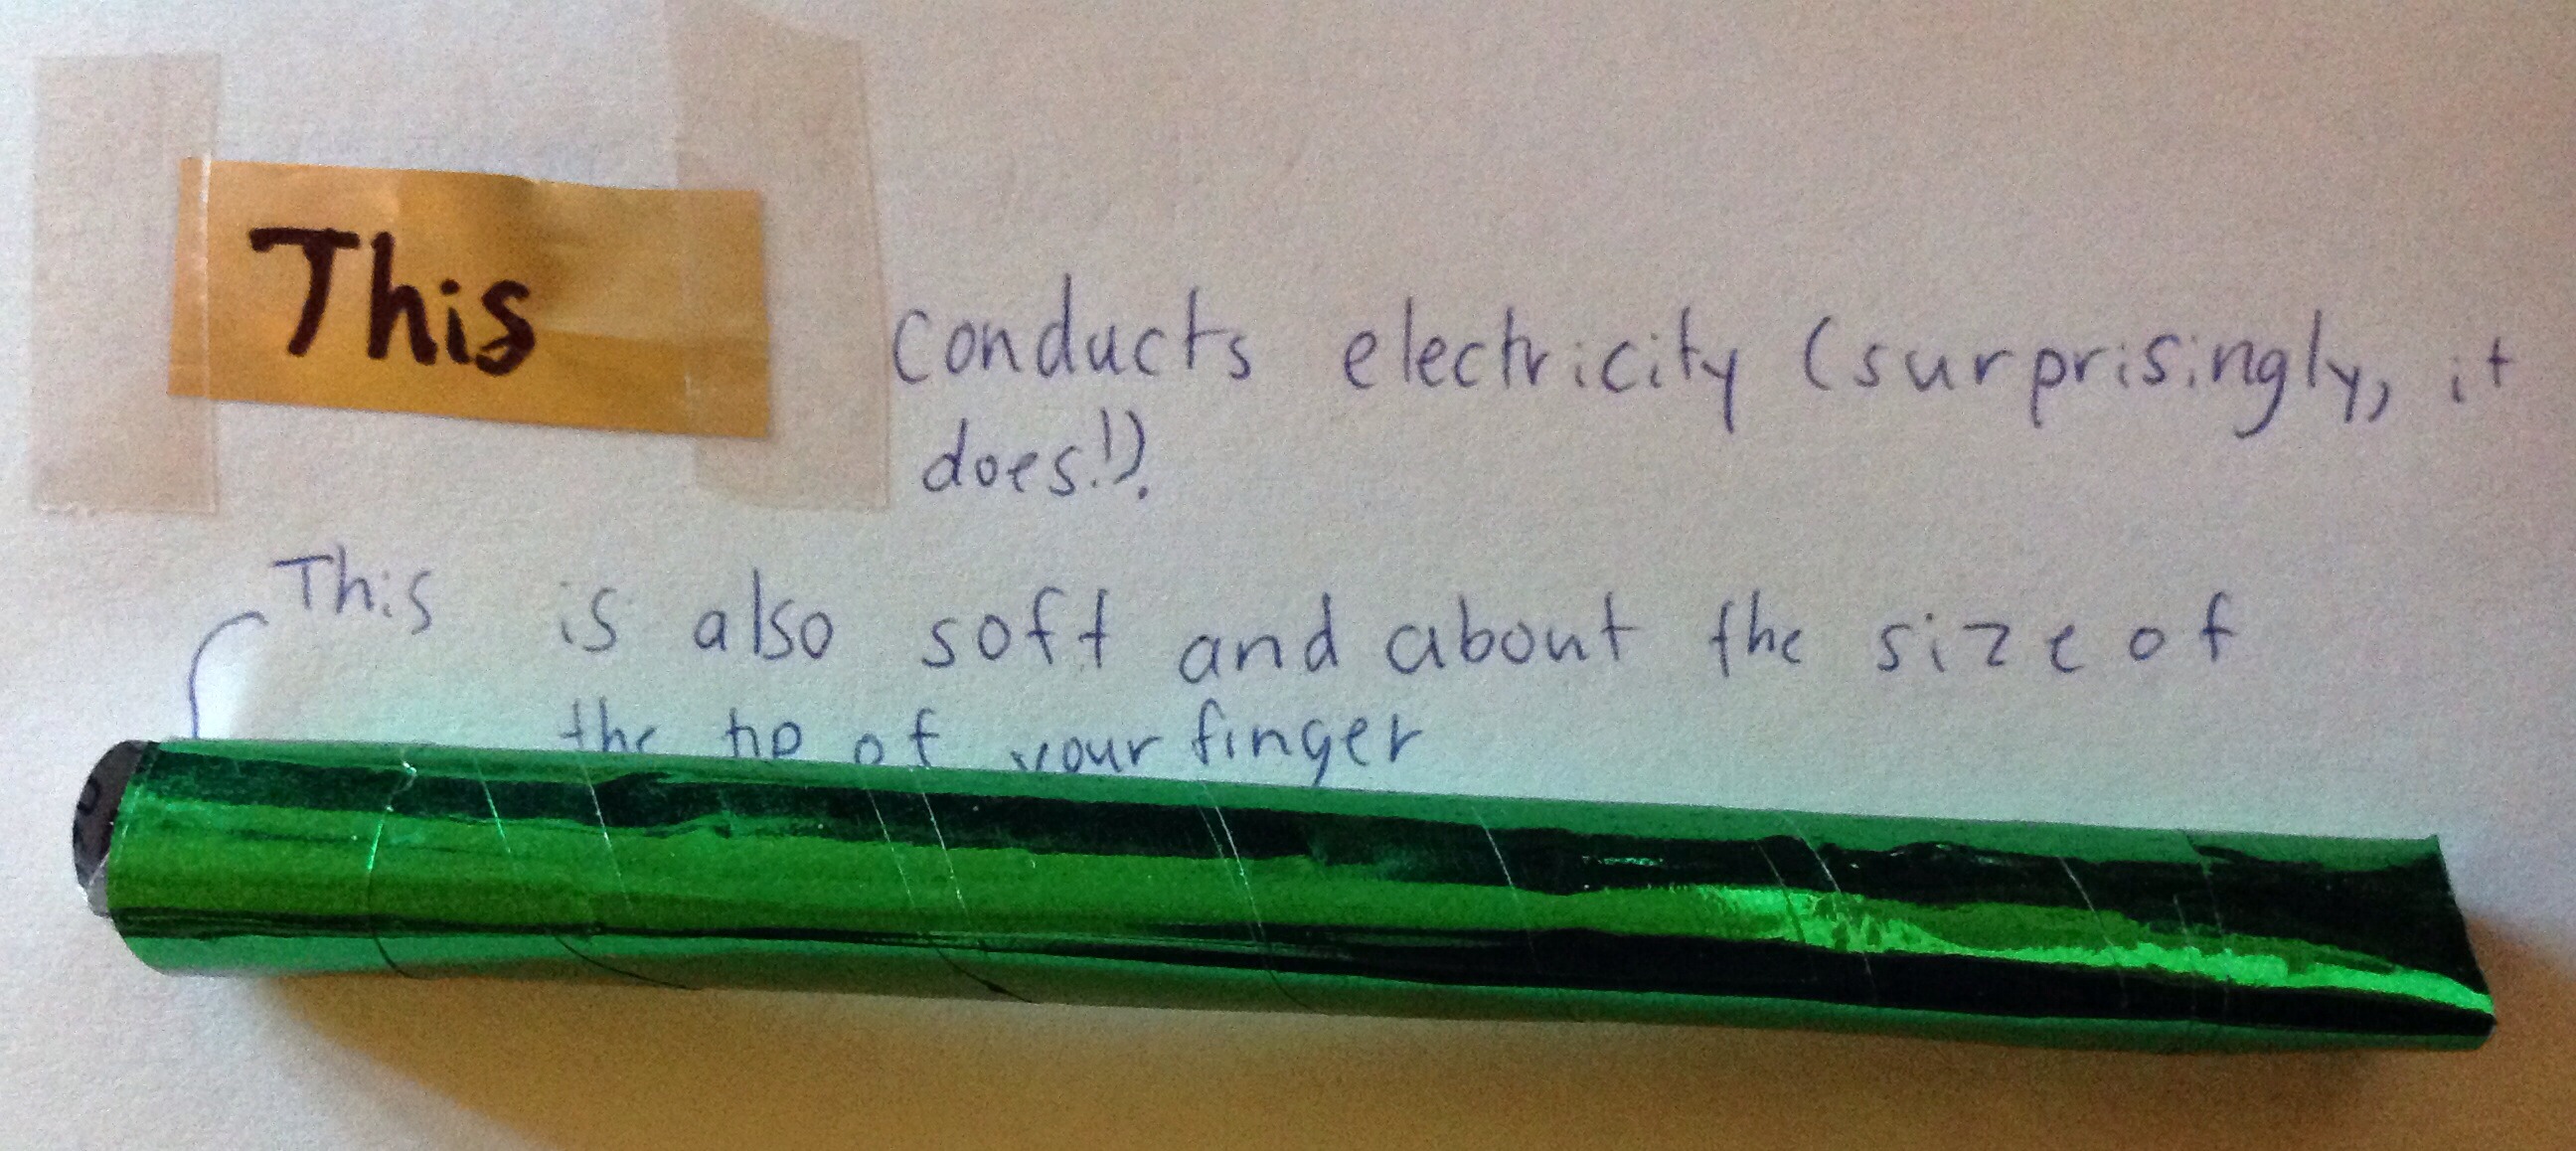 This conducts electricity (surprisingly, it
does!).
This is also soft and about the size of
the tip of your finger